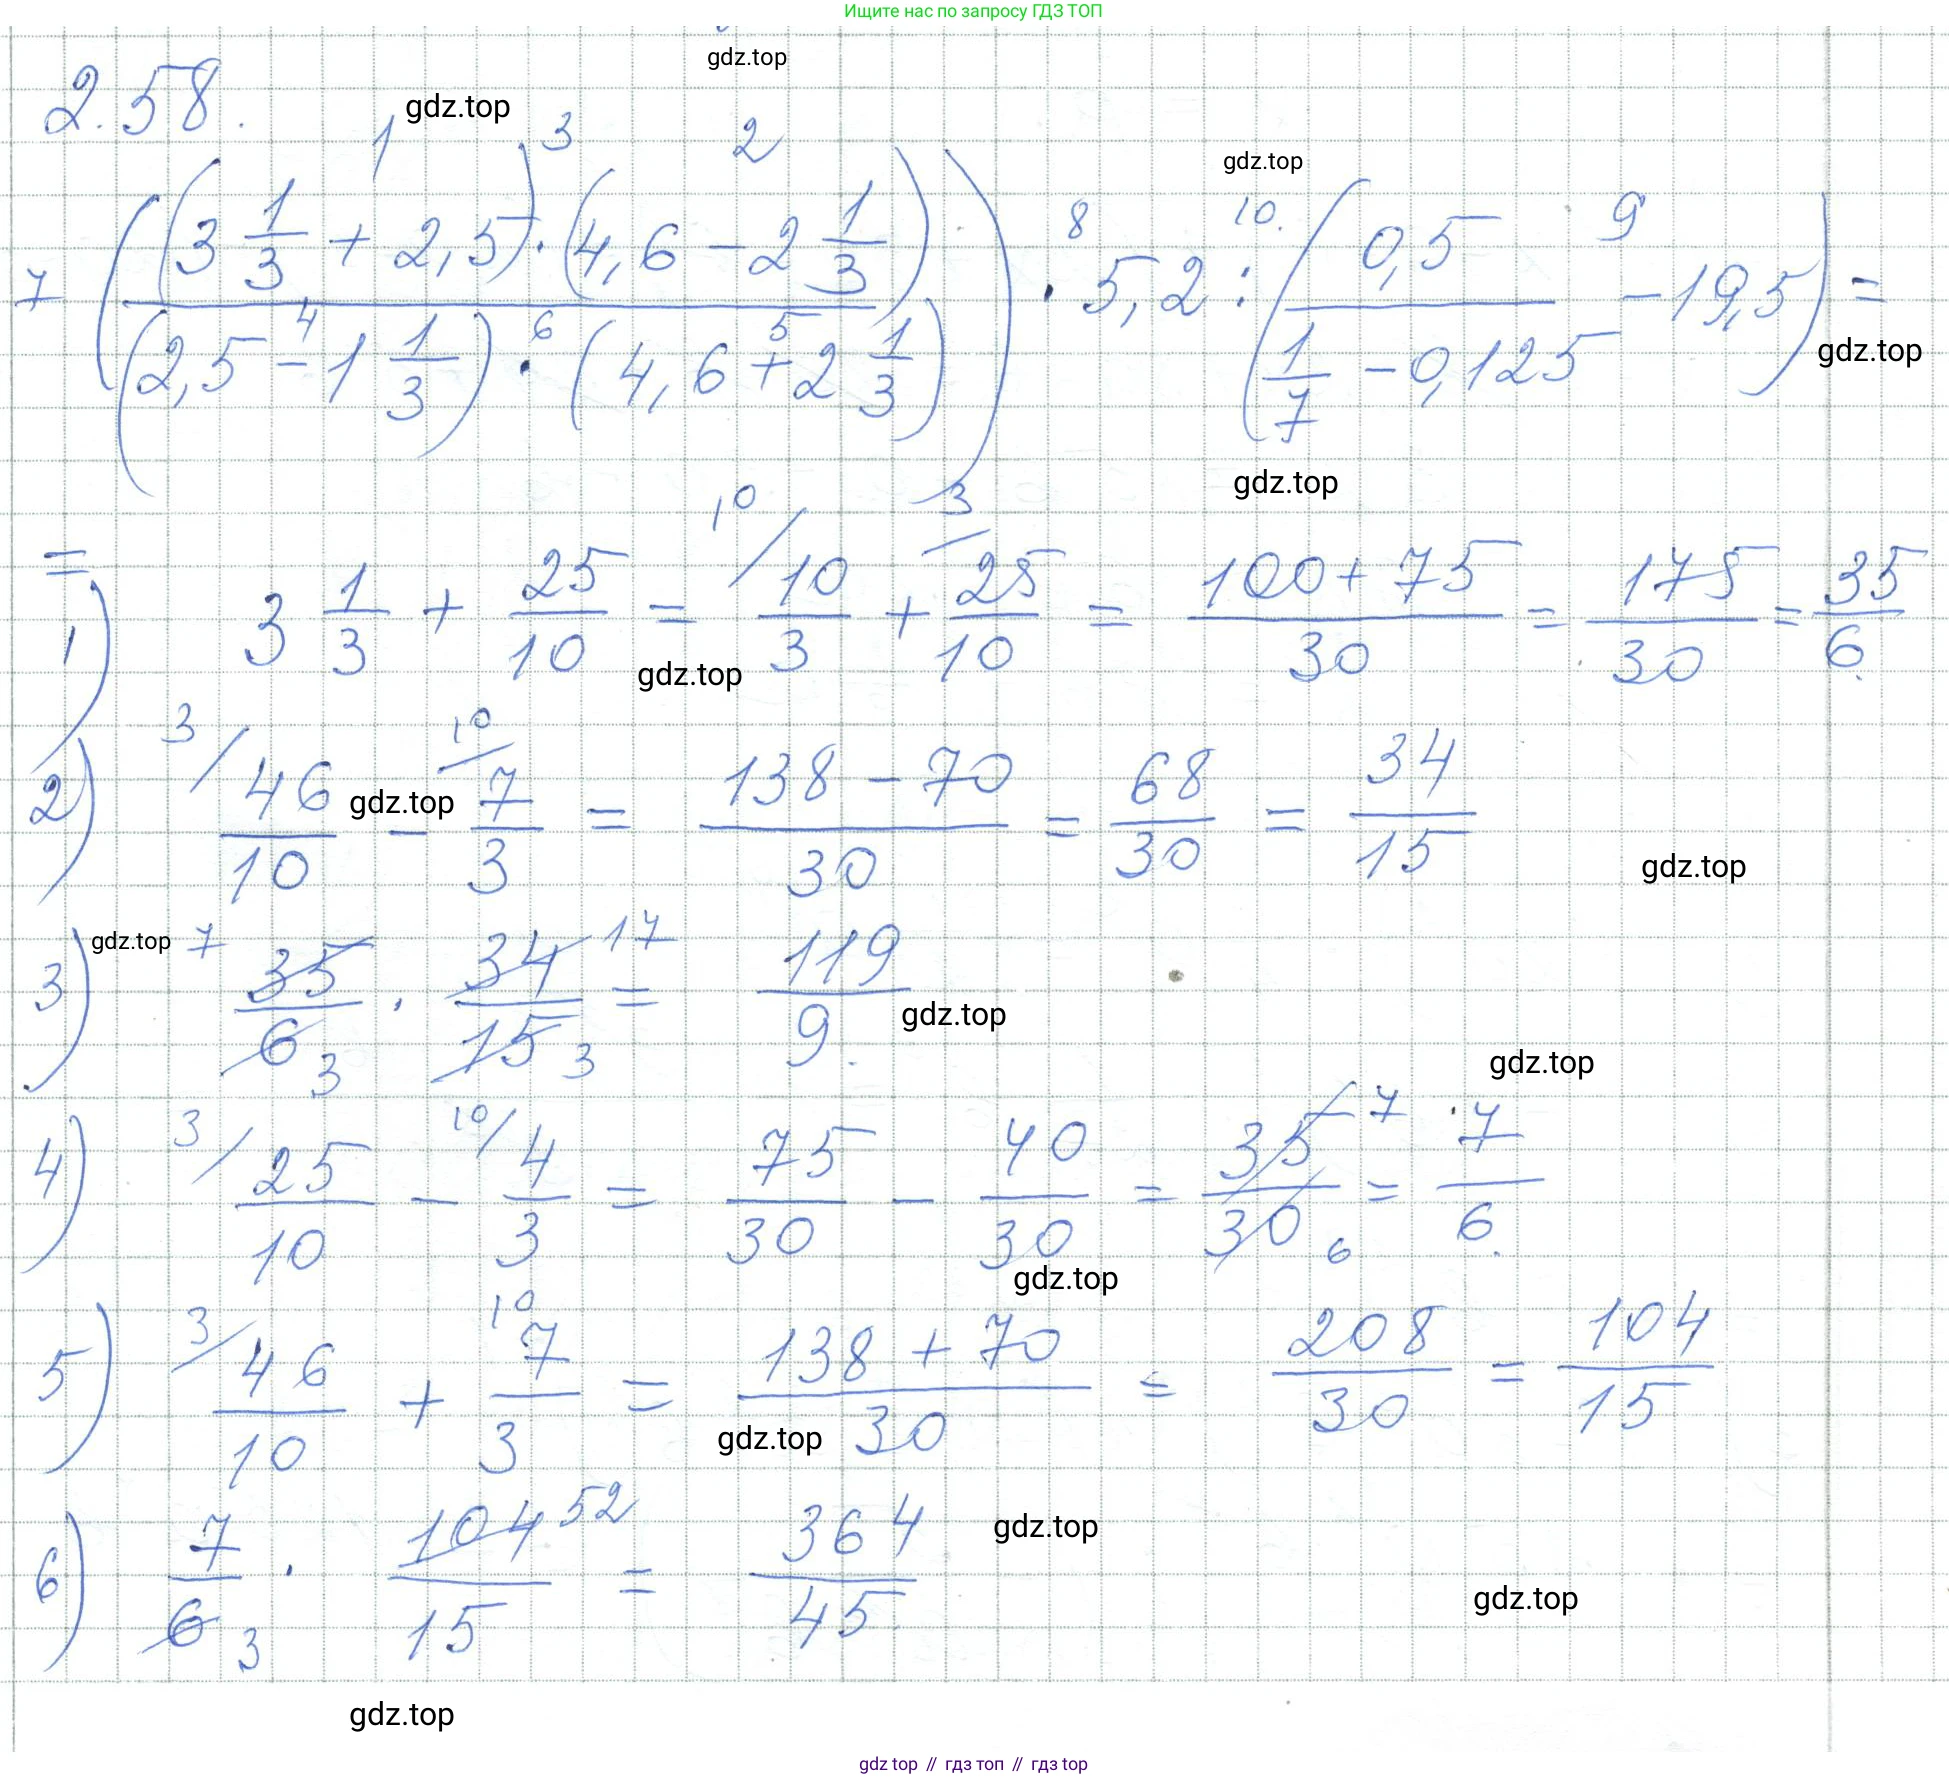 Ищите нас по запросу ГДЗ ТОП
gdz.top
2.58.
gdz.top
1 3 2
gdz.top
7 ( (3 1/3 + 2,5) · (4,6 − 2 1/3) / (2,5 − 1 1/3) · (4,6 + 2 1/3) ) · 5,2 : ( 0,5 / (1/7 − 0,125) − 19,5 ) =
8 10. 9
4 6 5
gdz.top
gdz.top
=
1) 3 1/3 + 25/10 = 10/ 10/3 + 3/ 25/10 = 100 + 75 / 30 = 175/30 = 35/6.
gdz.top
2) 3/ 46/10 − 10/ 7/3 = 138 − 70 / 30 = 68/30 = 34/15
gdz.top
gdz.top
3) 7 35/6 3 · 34/15 3 17 = 119/9.
gdz.top
gdz.top
gdz.top
4) 3/ 25/10 − 10/ 4/3 = 75/30 − 40/30 = 35/30 7 6 = 7/6.
gdz.top
5) 3/ 46/10 + 10 7/3 = 138 + 70 / 30 = 208/30 = 104/15
gdz.top
6) 7/6 3 · 104/15 52 = 364/45
gdz.top
gdz.top
gdz.top
gdz top // гдз топ // гдз top